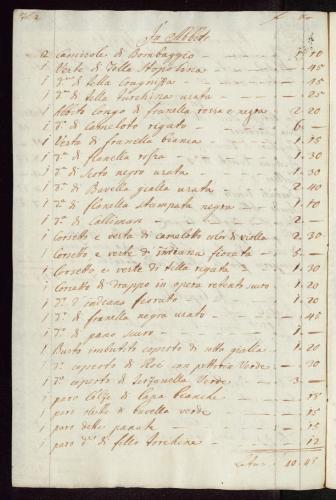 In Abiti
2 camisole di Bombaggio — 10
1 Veste di Tella — 45
1 d.º di tella — 15
1 d.º di tella turchina usata — 25
1 Abito longo di franella rossa e negra 2 20
1 d.º di Cameloto rigato — 6 —
1 Vesta di franella bianca — 1.15
1 d.º di flanella — 1.30
1 d.º di Scoto negro usata — 1.30
1 d.º di Bavella gialla usata — 2.40
1 d.º di flanella stampata negra — 1.10
1 d.º di Calliman — 2 —
1 Corsetto e vesta di camelotto color di violla 2.30
1 Corsetto e veste di indiana fiorata — 5 —
1 Corsetto e veste di tella rigata — 1.30
1 Corsetto di Drappo in opera scuro 1.20
1 d.º d'indiana fiorato — 1.20
1 d.º di franella negra usato — 45
1 d.º di pano scuro — 1 —
1 Busto imbutito coperto di setta gialla 1.20
1 d.º coperto di con pettoria Verde — 30
1 d.º coperto di Verde — 3 —
1 paro Calze di lana bianche — 15
1 paro dette di bavella verde — 15
1 paro dette — 15
1 paro d.e di fillo torchine — 12
Latus 40.45